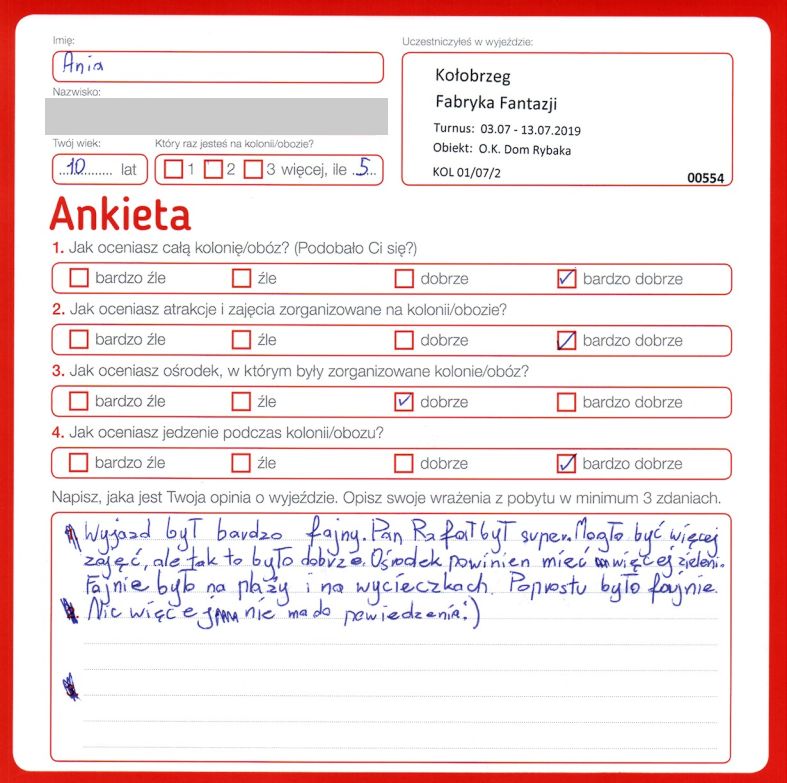 Imię:
Ania
Uczestniczyłeś w wyjeździe:
Kołobrzeg
Fabryka Fantazji
Turnus: 03.07 - 13.07.2019
Obiekt: O.K. Dom Rybaka
KOL 01/07/2
00554
Nazwisko:
Twój wiek:
10 lat
Który raz jesteś na kolonii/obozie?
1 2 3 więcej, ile 5
Ankieta
1. Jak oceniasz całą kolonię/obóz? (Podobało Ci się?)
bardzo źle źle dobrze bardzo dobrze
2. Jak oceniasz atrakcje i zajęcia zorganizowane na kolonii/obozie?
bardzo źle źle dobrze bardzo dobrze
3. Jak oceniasz ośrodek, w którym były zorganizowane kolonie/obóz?
bardzo źle źle dobrze bardzo dobrze
4. Jak oceniasz jedzenie podczas kolonii/obozu?
bardzo źle źle dobrze bardzo dobrze
Napisz, jaka jest Twoja opinia o wyjeździe. Opisz swoje wrażenia z pobytu w minimum 3 zdaniach.
Wyjazd był bardzo fajny. Pan Rafał był super. Mogło być więcej
zajęć, ale tak to było dobrze. Ośrodek powinien mieć więcej zieleni.
Fajnie było na plaży i na wycieczkach. Poprostu było fajnie.
Nic więcej nie ma do powiedzenia:)